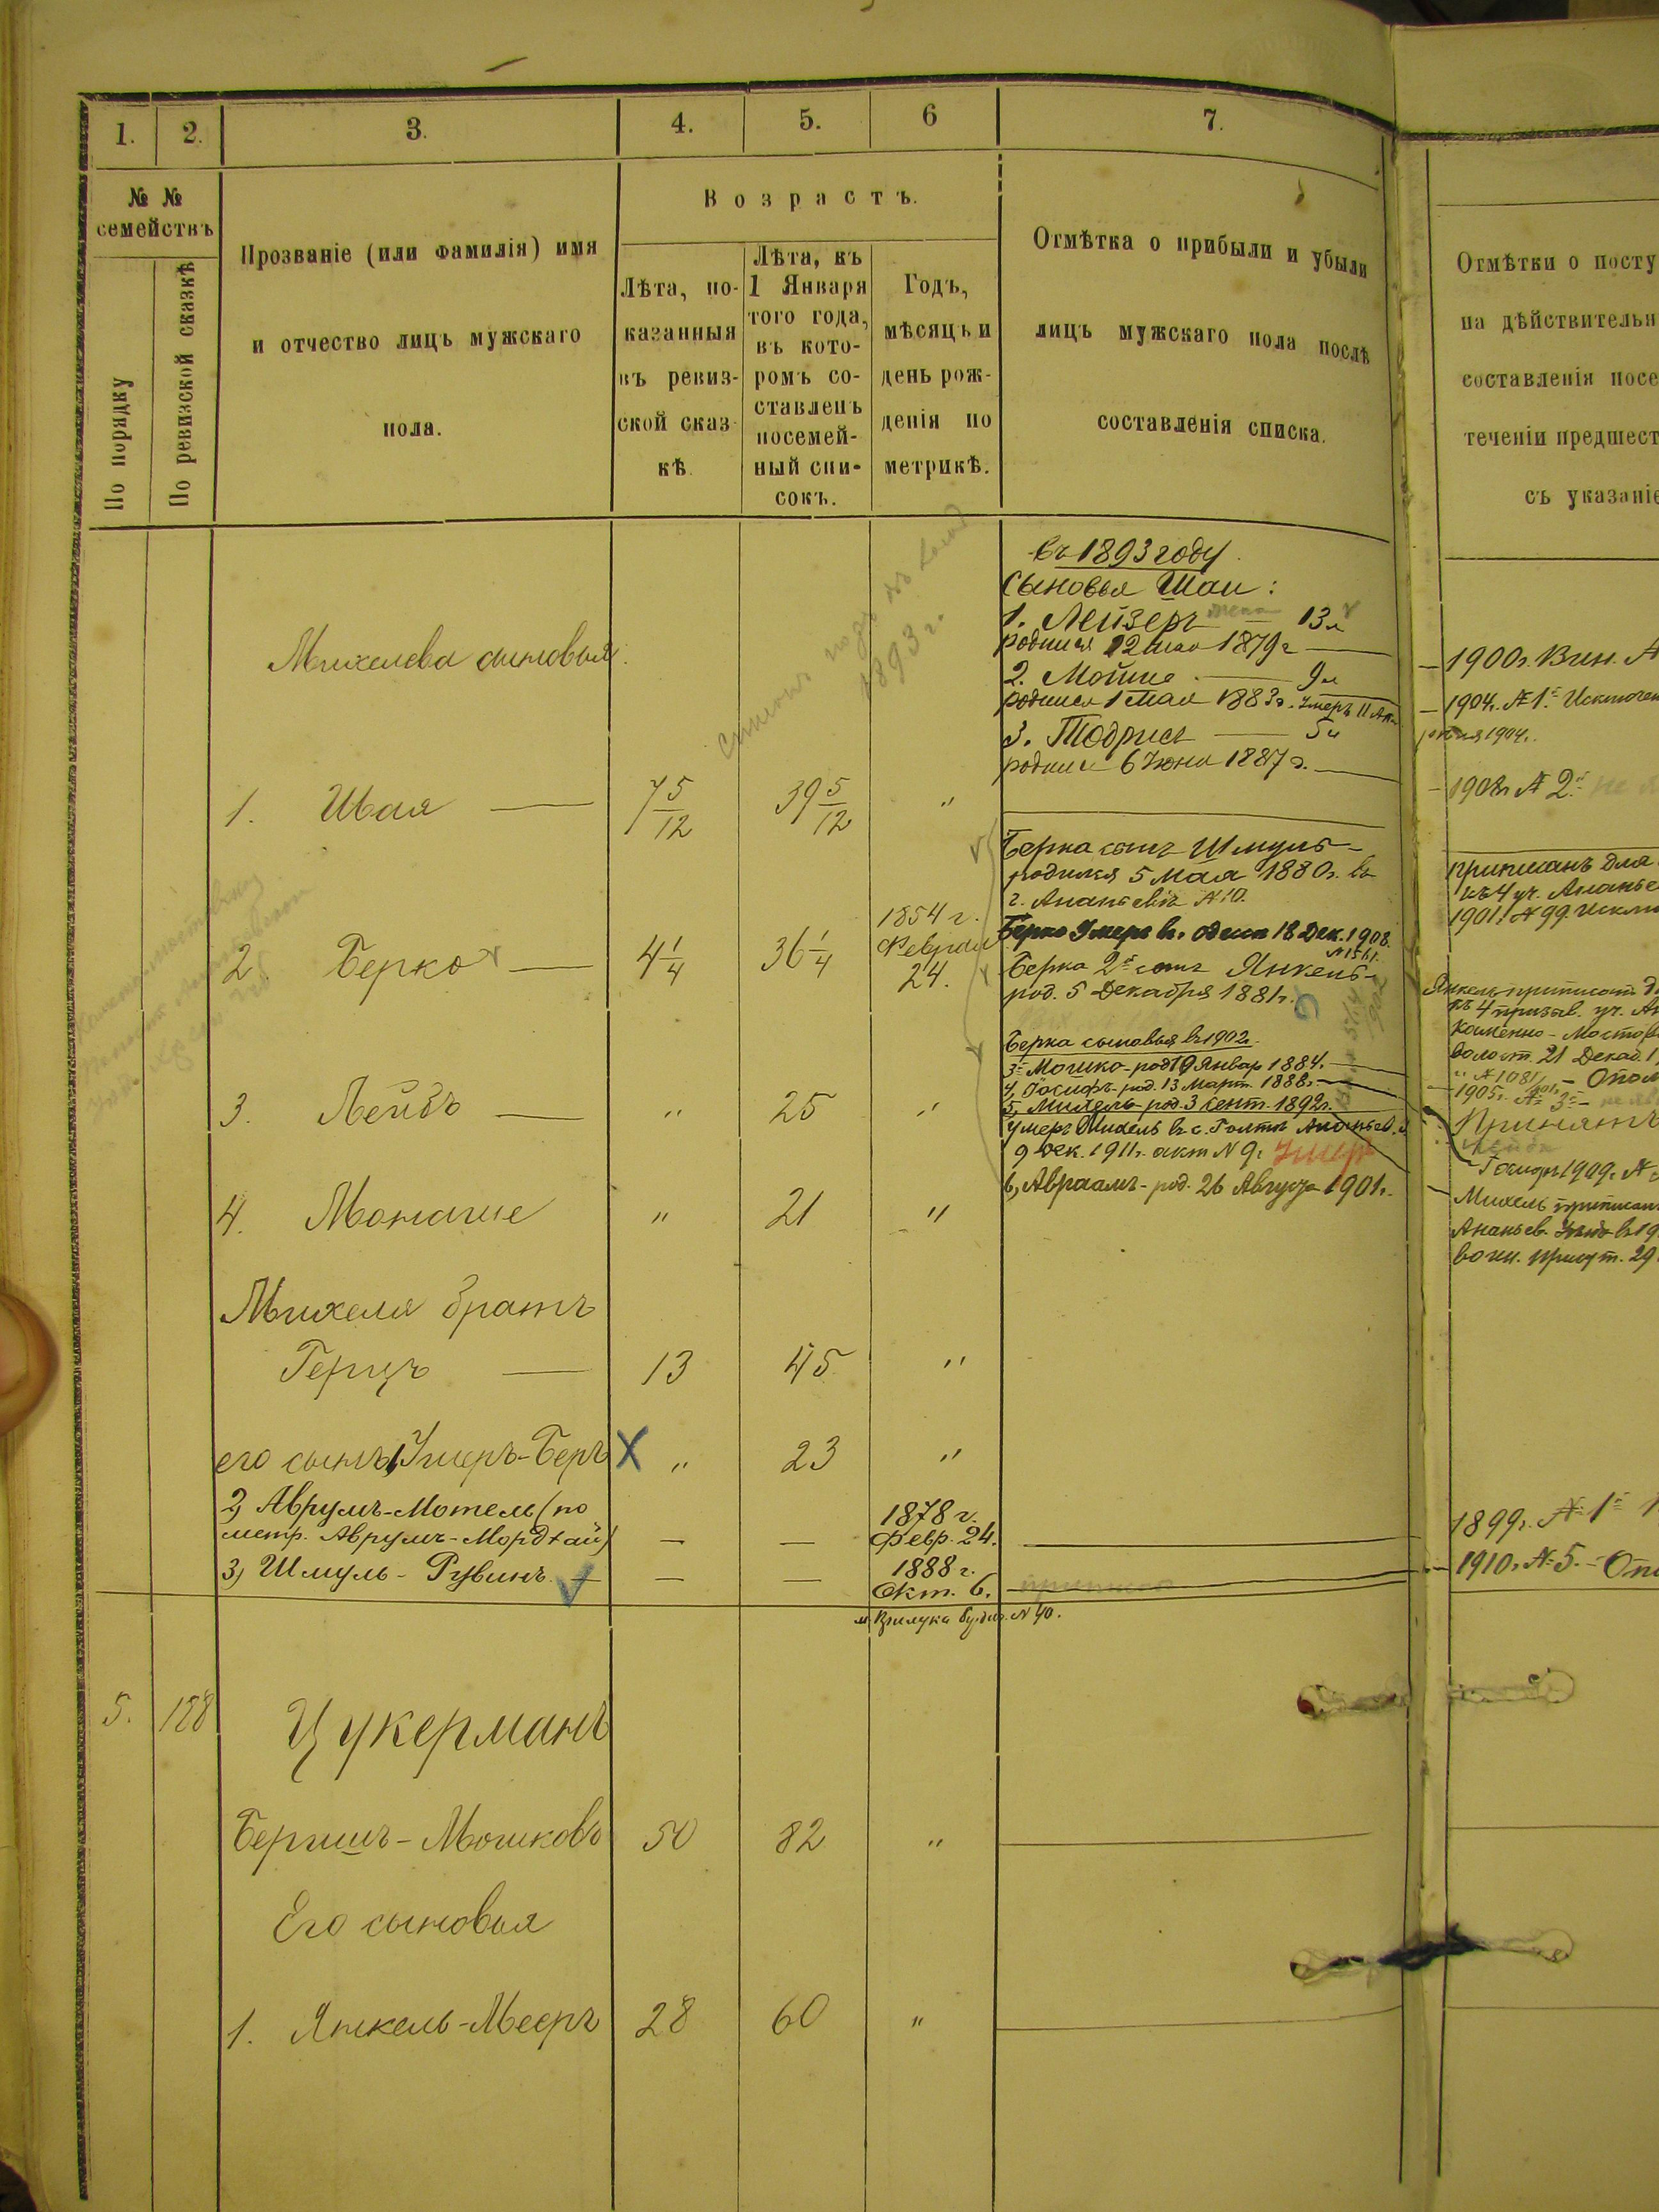 1. 2. 3. 4. 5. 6 7.
№ №
семействъ
По порядку
По ревизской сказкѣ
Прозваніе (или фамилія) имя
и отчество лицъ мужскаго
пола.
Возрастъ.
Лѣта, по-
казанныя
въ ревиз-
ской сказ-
кѣ
Лѣта, къ
1 Января
того года,
въ кото-
ромъ со-
ставленъ
посемей-
ный спи-
сокъ.
Годъ,
мѣсяцъ и
день рож-
денія по
метрикѣ.
Отмѣтка о прибыли и убыли
лицъ мужскаго пола послѣ
составленія списка.
Отмѣтки о посту
на дѣйствительн
составленія посе
теченіи предшест
съ указаніе
въ 1893 году
Сыновья Шаи:
1. Лейзеръ 13 л
родился 12 мая 1879 г
2. Мойше 9 л
родился 1 мая 1883 г. умеръ 11 Апр
3. Тодрисъ 5 л
родился 6 Июня 1887 г.
1893 г.
Михелева сыновья:
1. Шая 7 5/12 39 5/12 "
Берка сынъ Шмуль
родился 5 Мая 1880 г. въ
г. Ананьевѣ № 10.
2. Берко 4 1/4 36 1/4 1854 г.
Февраля
24.
Берко Умеръ въ. Одессѣ 18 Дек. 1908.
№ 1561.
Берка 2й сынъ Янкель
род. 5 Декабря 1881 г.
Берка сыновья въ 1902 г.
3й Мошко - род 19 Январ 1884.
4, Іосифъ - род. 13 Март. 1888 г.
5, Михель - род. 3 сент. 1892 г.
умеръ Михель въ с. Голтѣ Ананьев. у
9 дек. 1911 г. акт № 9. Умеръ
6, Авраамъ - род. 26 Августа 1901 г.
3. Лейбъ " 25 "
4. Монаше " 21 "
Михеля братъ
Герцъ 13 45 "
его сынъ 1, Умеръ-Беръ X " 23 "
2, Аврумъ-Мотель (по
метр. Аврумъ-Мордхай) — — 1878 г.
Февр. 24.
3, Шмуль - Рувинъ — — 1888 г.
Окт. 6.
№ 40.
5. 128 Цукерманъ
Беришъ - Мошковъ 50 82 "
Его сыновья
1. Янкель-Мееръ 28 60 "
1900 г. Вин. №
1904 г. № 1й Исключен
1904 г.
1908 г № 2й
приписанъ для
къ 4 уч. Ананье
1901 г. № 99 исклю
Янкель приписанъ д
къ 4 призыв. уч. Ан
Каменно - Мостов
волост. 21 Декаб. 1
№ 1081 - Опол
1905 г. № 3й
Принятъ
1909 г. №
Михель приписан
Ананьев. въ 19
воин. присут. 29
1899 г. № 1й
1910 г. № 5. - Опо